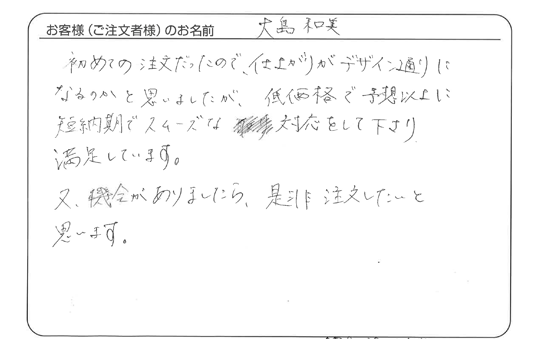 お客様(ご注文者様)のお名前 大島 和美
初めての注文だったので、仕上がりがデザイン通りに
なるのかと思いましたが、低価格で予想以上に
短納期でスムーズな 対応をして下さり
満足しています。
又、機会がありましたら、是非注文したいと
思います。